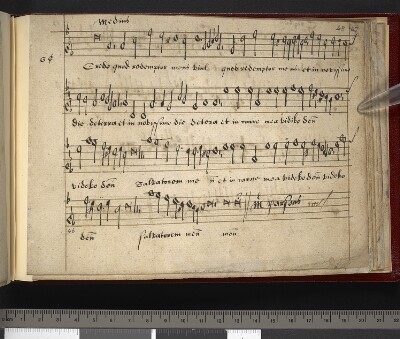 Medius
Credo quod redemptor meus vivit quod redemptor meus et in novissimo
die de terra et in novissimo die de terra et in carne mea videbo deū
videbo deū Salvatorem meū et in carne mea videbo deū videbo
deū salvatorem meū meū mr parsons